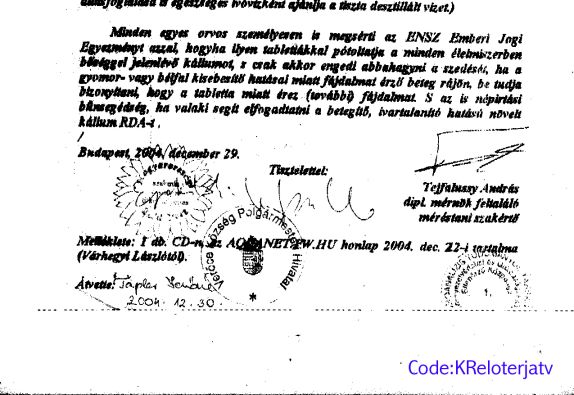 állásfoglalása is egészséges ivóvízként ajánlja a tiszta desztillált vizet.)
Minden egyes orvos személyesen is megsérti az ENSZ Emberi Jogi
Egyezményt azzal, hogyha ilyen tablettákkal pótoltatja a minden élelmiszerben
bőséggel jelenlévő káliumot, s csak akkor engedi abbahagyni a szedését, ha a
gyomor- vagy bélfal kisebesítő hatásai miatt fájdalmat érző beteg rájön, be tudja
bizonyítani, hogy a tabletta miatt érez (további) fájdalmat. S az is népirtási
bűnsegédség, ha valaki segít elfogadtatni a betegítő, ivartalanító hatású növelt
kálium RDA-t.
Budapest, 2004. december 29.
Tisztelettel:
Tejfalussy András
dipl. mérnök feltaláló
méréstani szakértő
Verőce Község Polgármesteri Hivatal
Melléklete: 1 db. CD-n az AQUANET.TW.HU honlap 2004. dec. 22-i tartalma
(Várhegyi Lászlótól).
1.
Átvette:
2004. 12. 30
Code:KReloterjatv